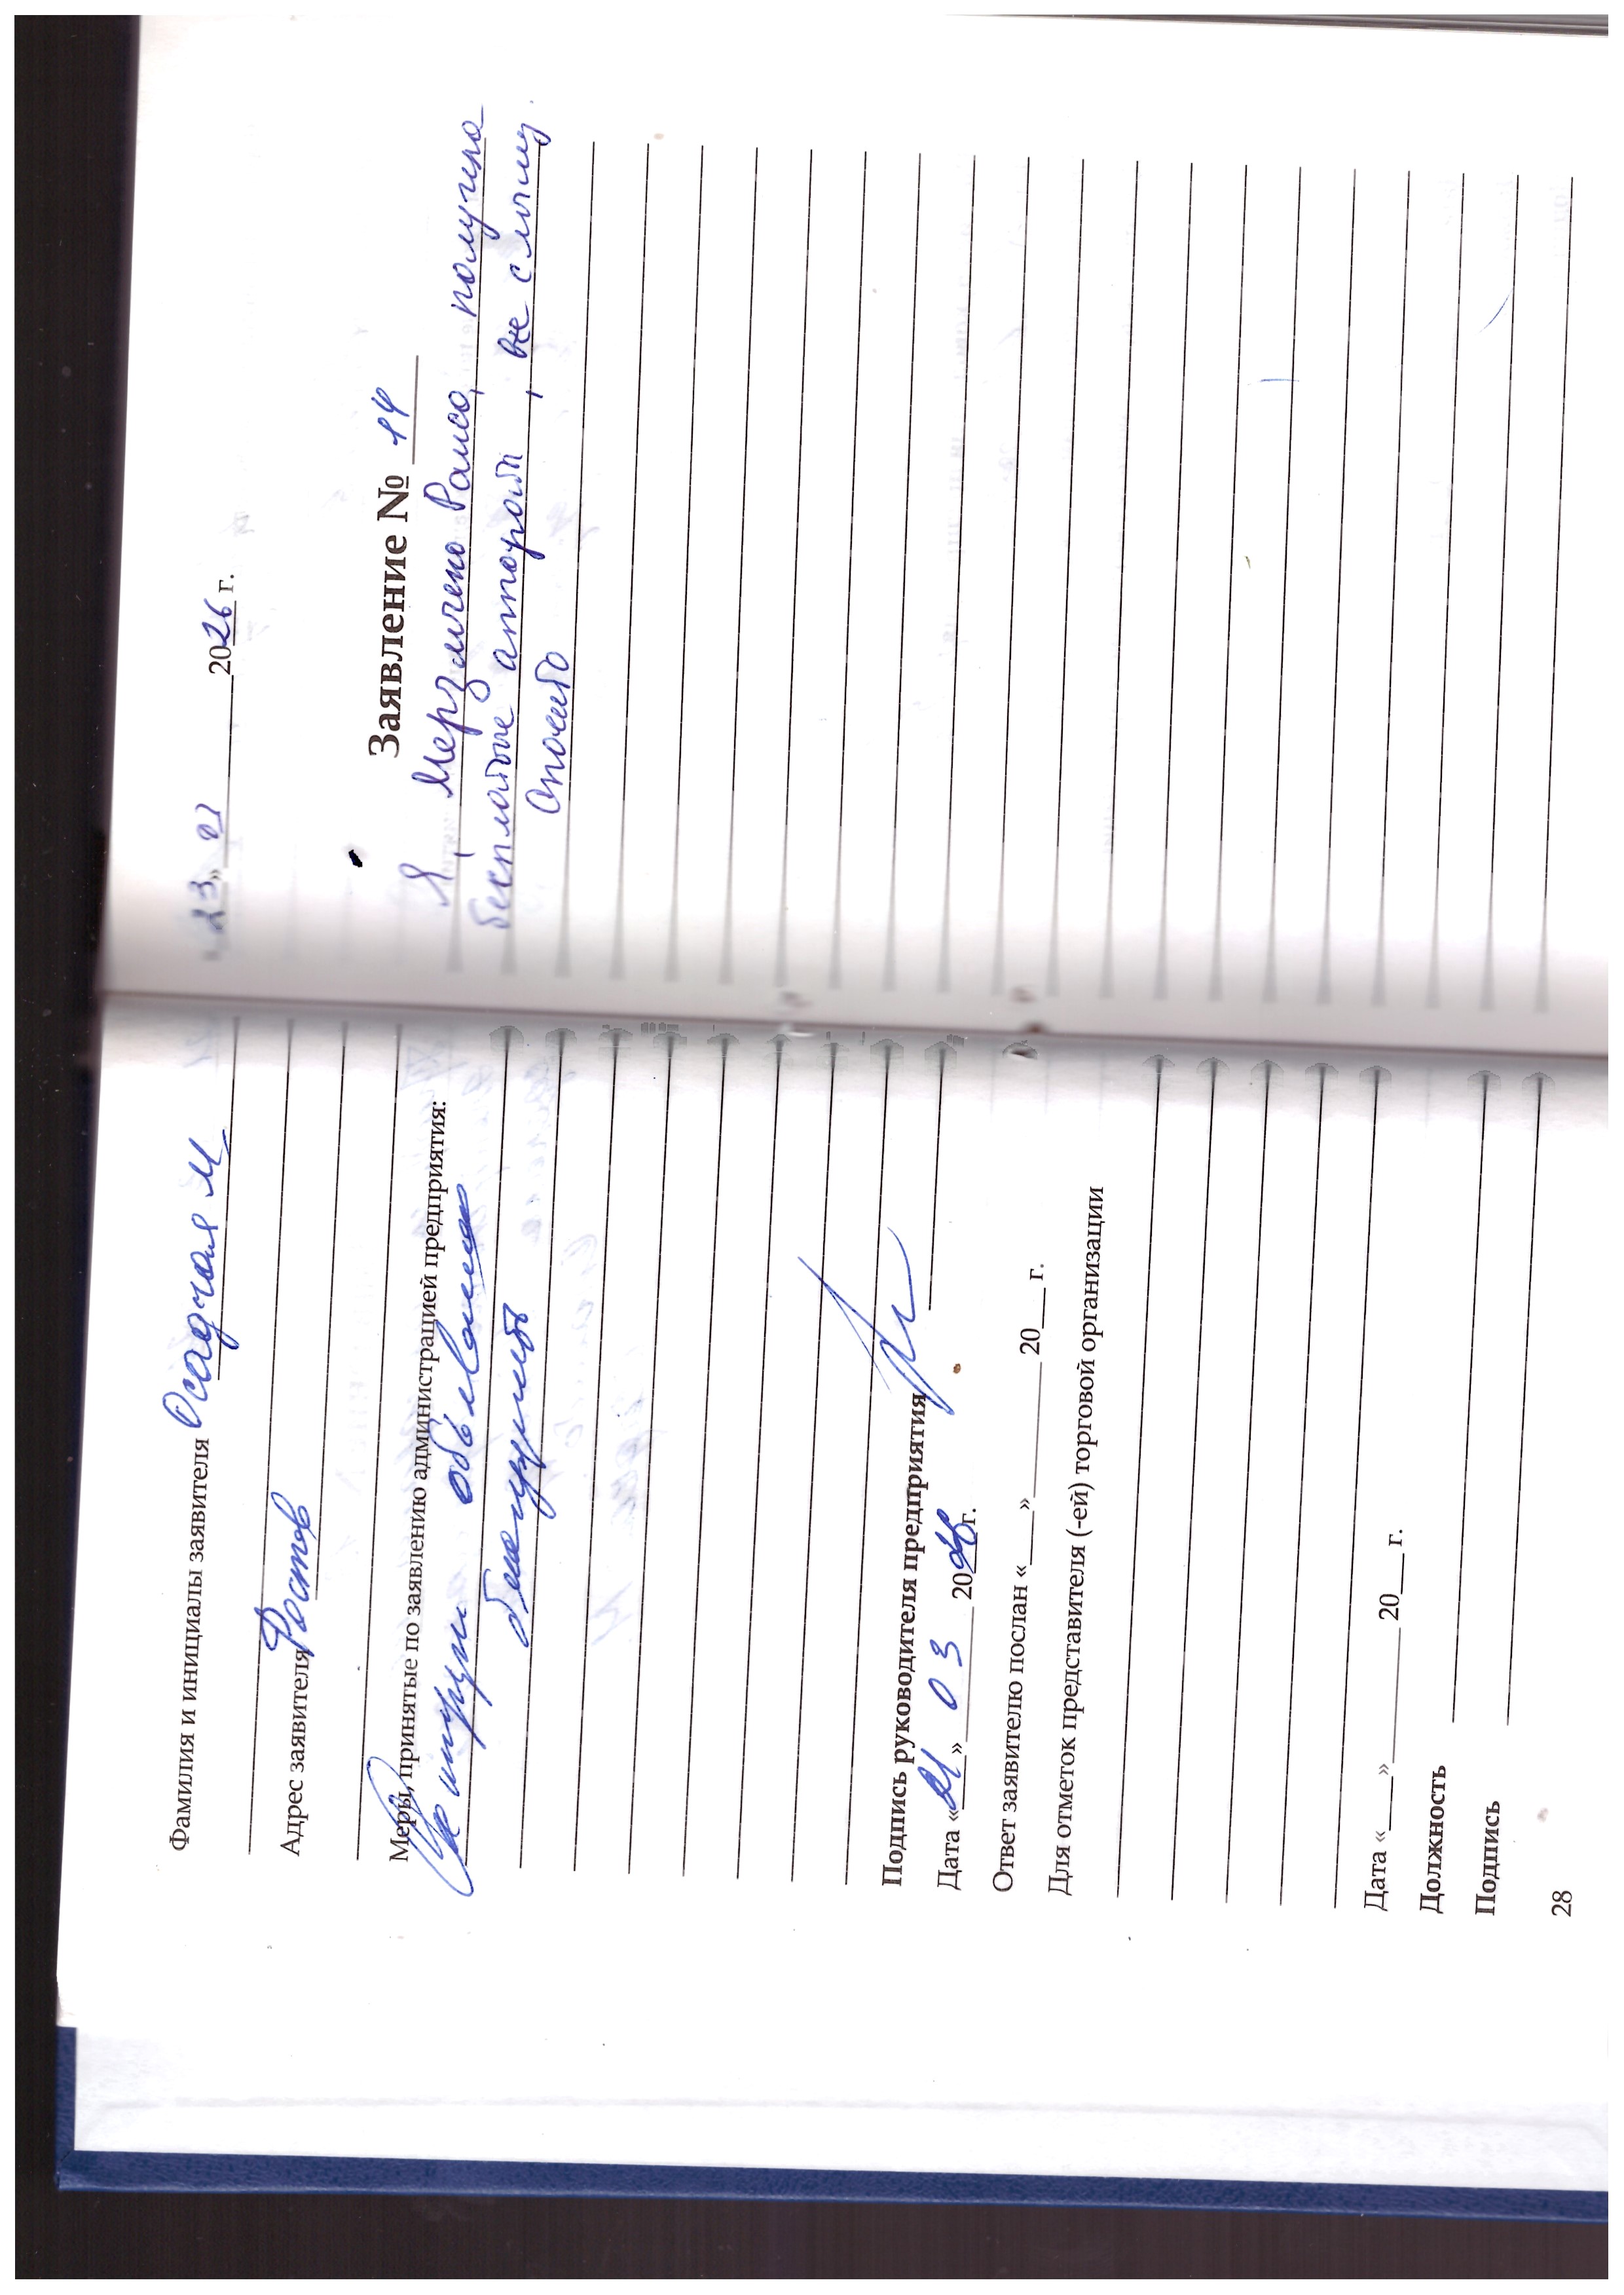 Фамилия и инициалы заявителя Осадчая М
Адрес заявителя Ростов
Меры, принятые по заявлению администрацией предприятия:
объявлена
Подпись руководителя предприятия
Дата «21» 03 2026 г.
Ответ заявителю послан «___»__________ 20___ г.
Для отметок представителя (-ей) торговой организации
Дата «___»__________ 20___ г.
Должность
Подпись
28
«23» 2026 г.
Заявление № 14
Я, Мерзличено Раиса, получила
бесплатные аппараты, все слышу.
Спасибо